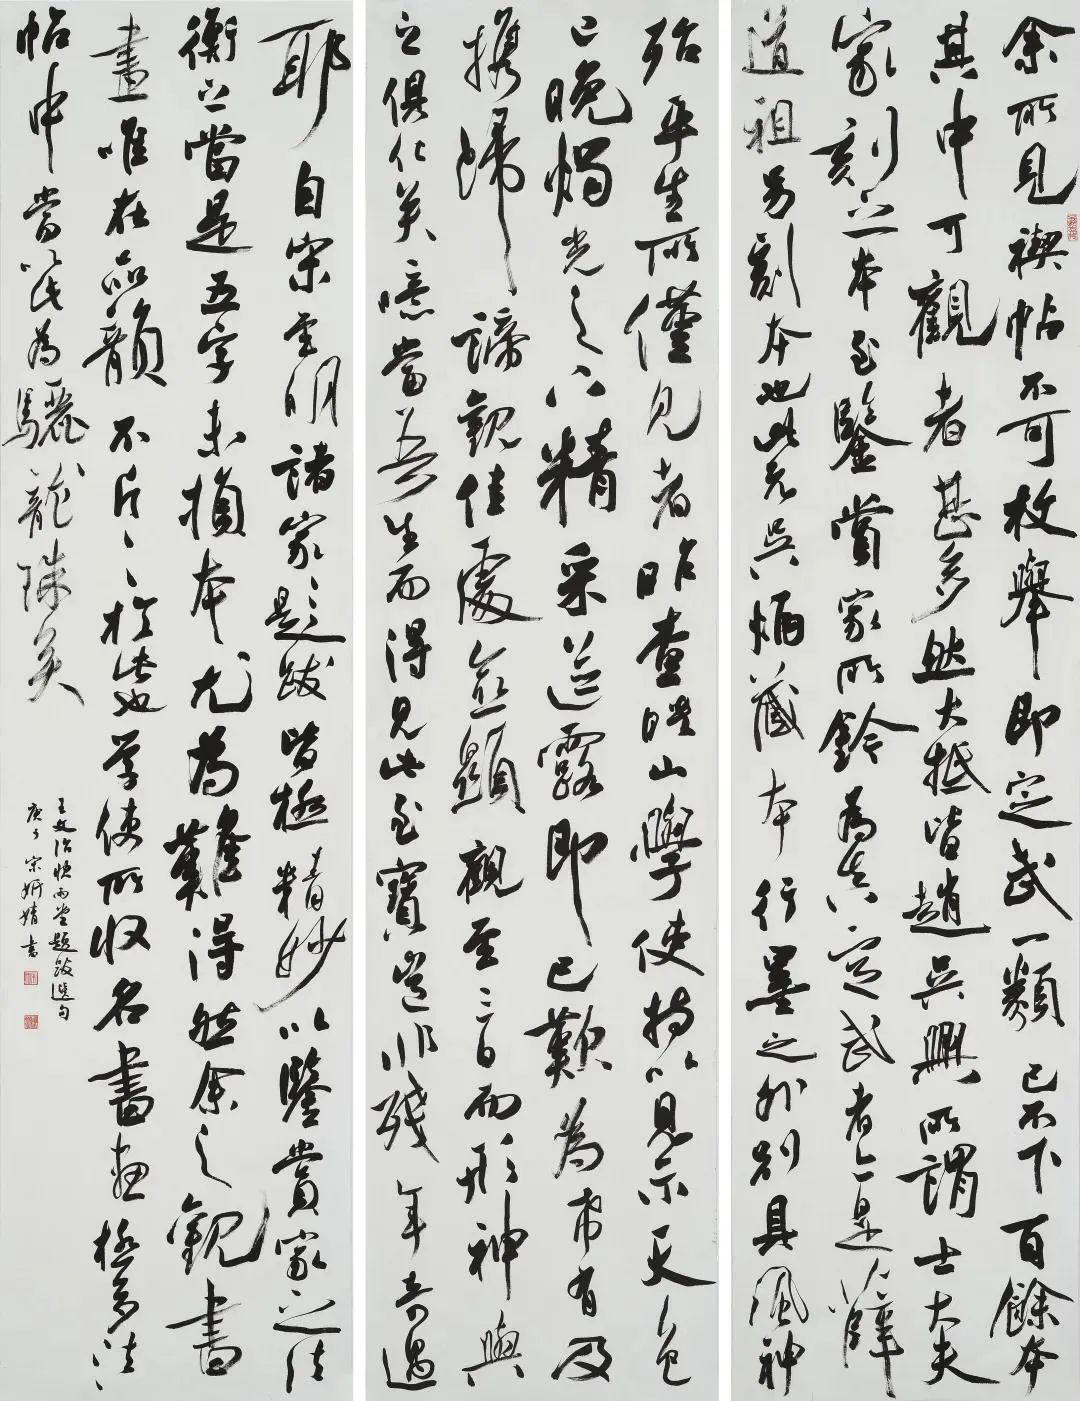 余所見禊帖不可枚舉即定武一類已不下百餘本
其中可觀者甚多然大抵皆趙吳興所謂士大夫
家刻一本至鑒賞家所矜為真定武者亦是薛
道祖另刻本也此元吳炳藏本行墨之外別具風神
殆平生所僅見者昨查映山學使持以見示天色
已晚燭光之下精采迸露即已歎為希有及
攜歸諦觀佳處愈顯觀至三日而形神與
之俱化矣噫當吾生而得見此至寶豈非殘年奇遇
耶自宋至明諸家題跋皆極精妙以鑒賞家之法
衡之當是五字未損本尤為難得然余之觀書
畫唯在品韻不斤斤於此也學使所收名書畫極多法
帖中當以此為驪龍珠矣
王文治快雨堂題跋選句
庚子宋妍婧書